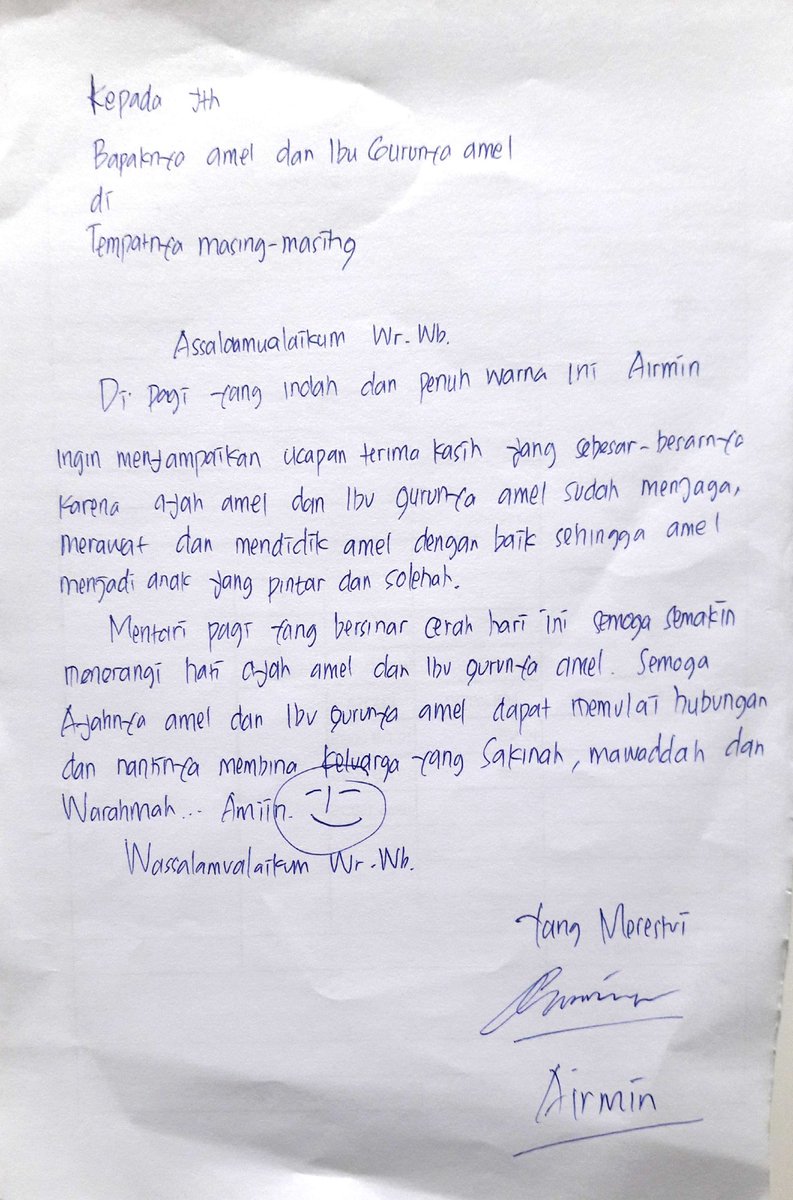 Kepada Yth
Bapaknya amel dan Ibu Gurunya amel
di
Tempatnya masing-masing
Assaloamualaikum Wr. Wb.
Di pagi yang indah dan penuh warna ini Airmin
ingin menyampaikan ucapan terima kasih yang sebesar-besarnya
karena ayah amel dan Ibu gurunya amel sudah menjaga,
merawat dan mendidik amel dengan baik sehingga amel
menjadi anak yang pintar dan solehah.
Mentari pagi yang bersinar cerah hari ini semoga semakin
menerangi hari ayah amel dan Ibu gurunya amel. Semoga
Ayahnya amel dan Ibu gurunya amel dapat memulai hubungan
dan nantinya membina keluarga yang Sakinah, mawaddah dan
Warahmah... Amiin.
Wassalamualaikum Wr. Wb.
Yang Merestui
Airmin